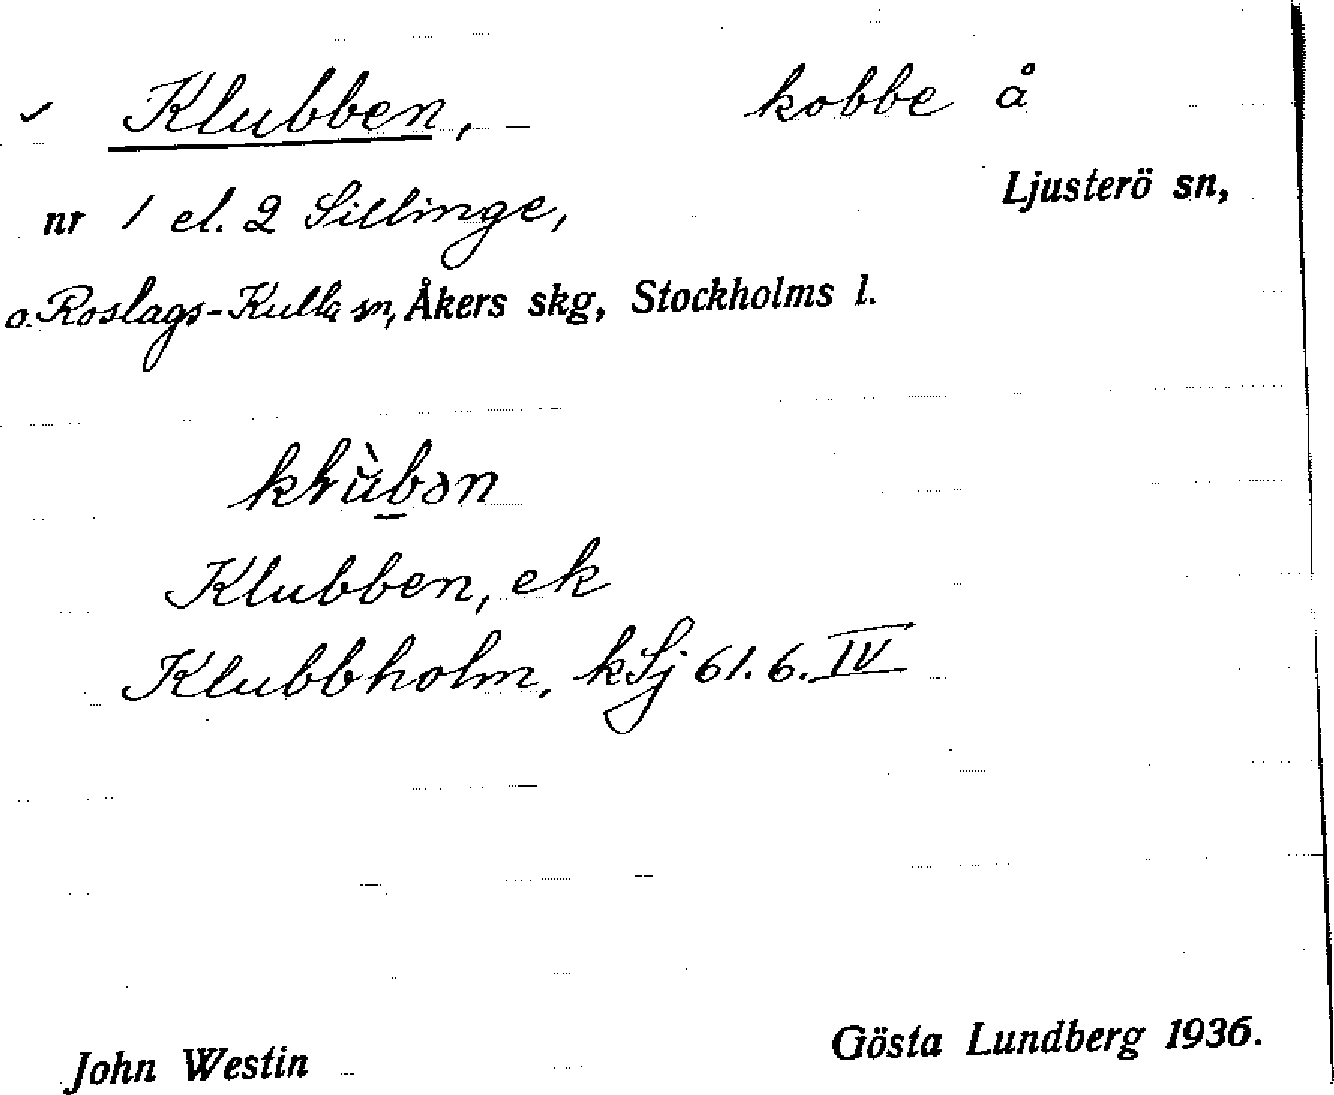 ✓ Klubben, kobbe å
nr 1 el. 2 Sillinge, Ljusterö sn,
o. Roslags-Kulla sn, Åkers skg, Stockholms l.
Klubben, ek
Klubbholm, kSj 61.6.IV
John Westin Gösta Lundberg 1936.